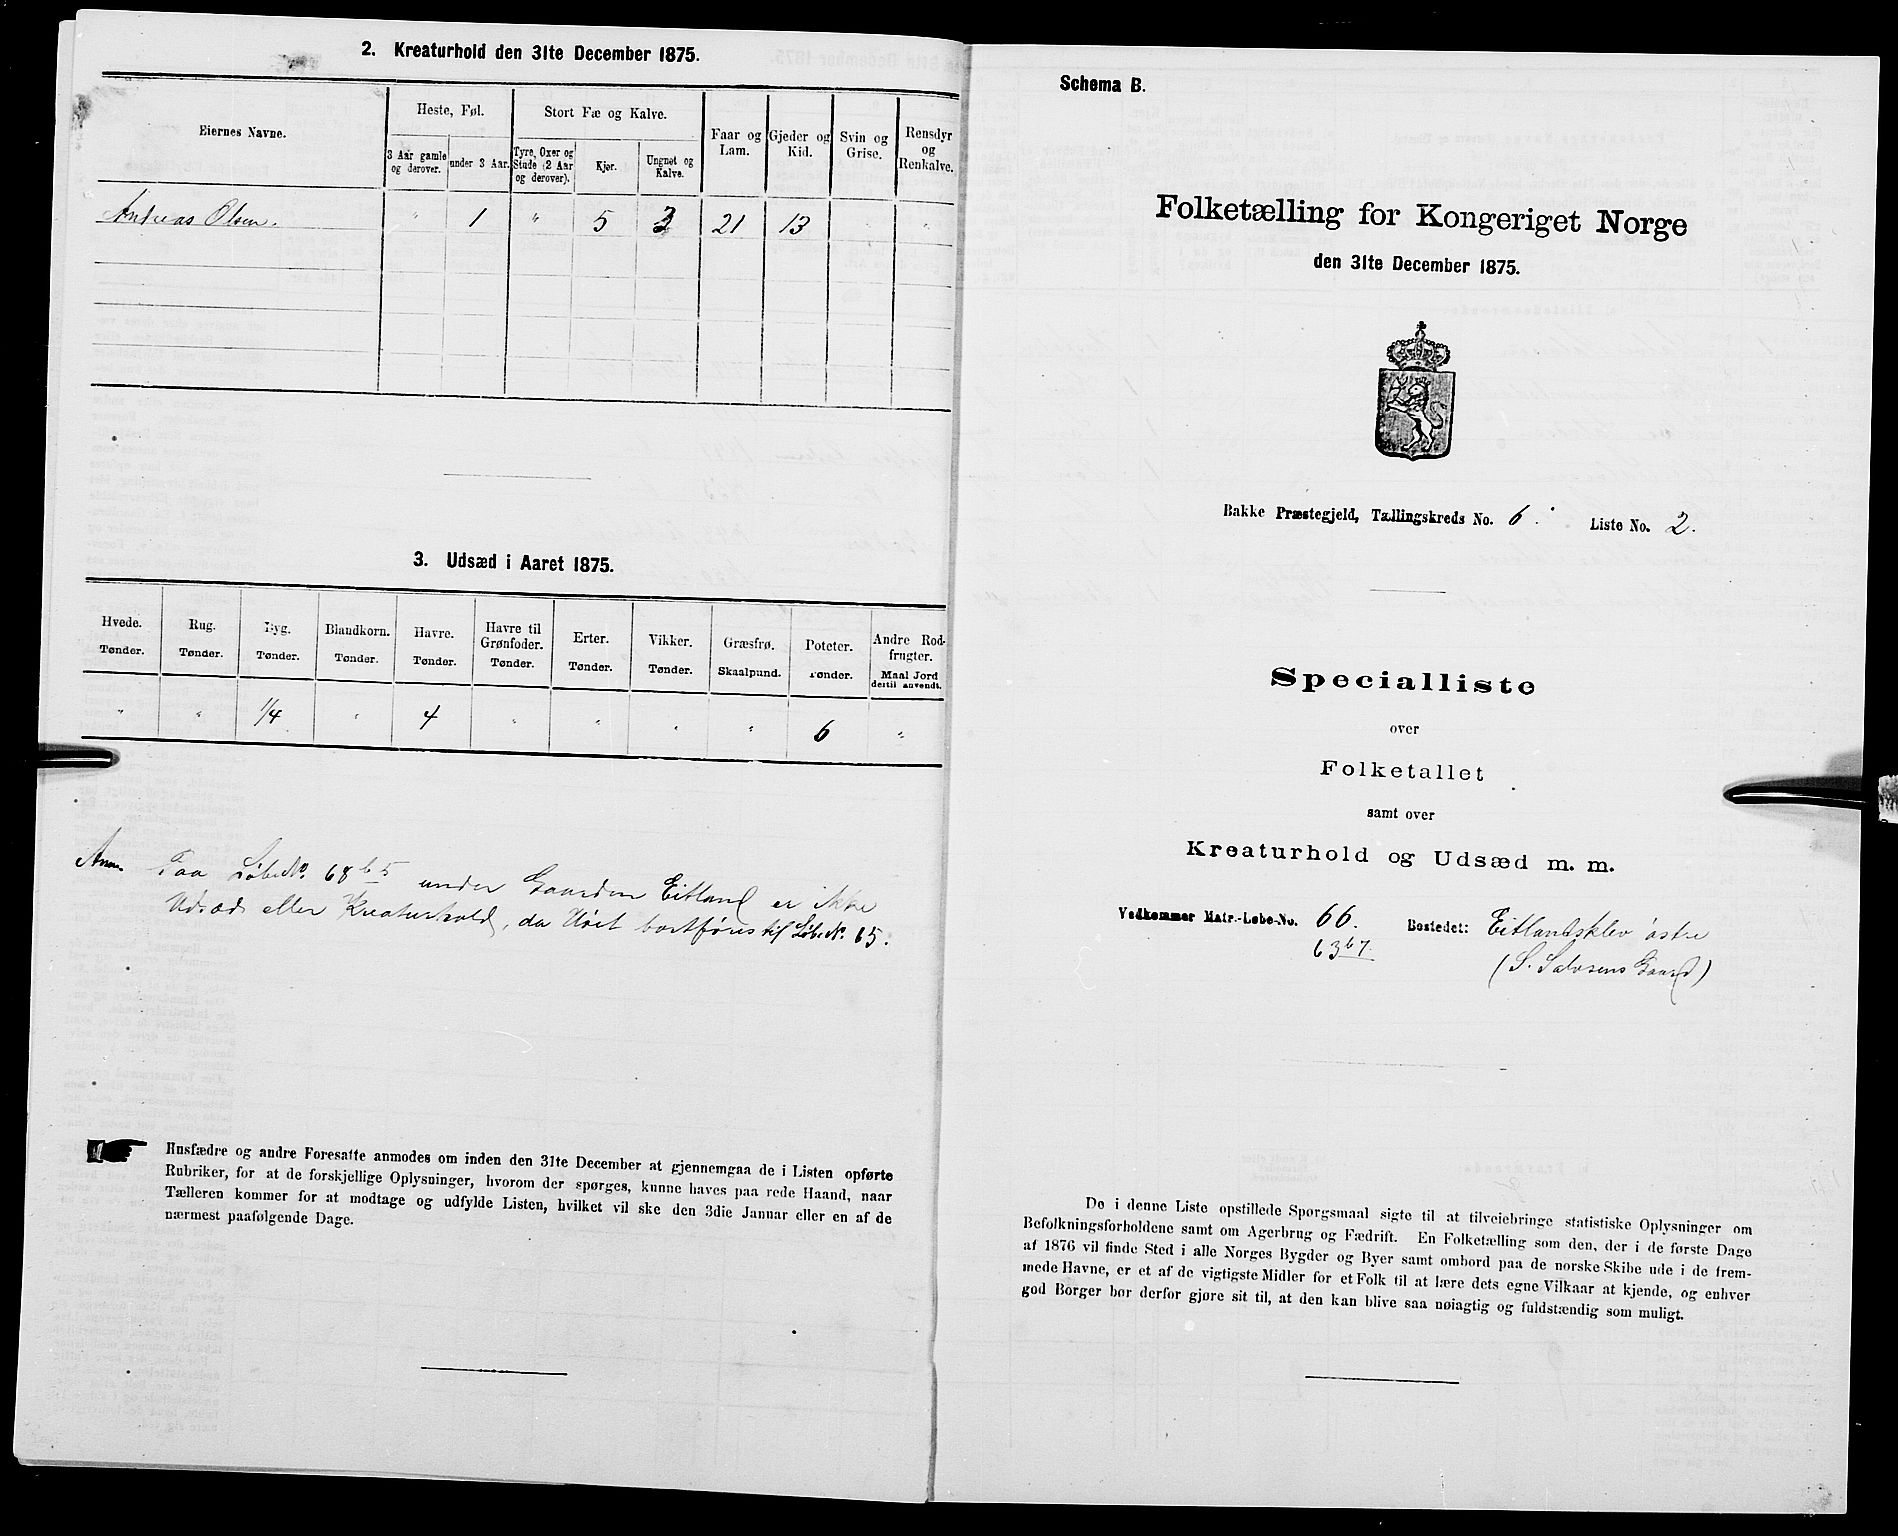 2. Kreaturhold den 31te December 1875.
Eiernes Navne.
Heste, Føl.
Stort Fæ og Kalve.
Faar og Lam.
Gjeder og Kid.
Svin og Grise.
Rensdyr og Renkalve.
3 Aar gamle og derover.
under 3 Aar.
Tyre, Oxer og Stude (2 Aar og derover).
Kjør.
Ungnøt og Kalve.
Andreas Olsen. " 1 " 5 3 21 13 " "
3. Udsæd i Aaret 1875.
Hvede. Rug. Byg. Blandkorn. Havre. Havre til Grønfoder. Erter. Vikker. Græsfrø. Poteter. Andre Rodfrugter.
Tønder. Tønder. Tønder. Tønder. Tønder. Tønder. Tønder. Tønder. Skaalpund. Tønder. Maal Jord dertil anvendt.
" " 1/4 " 4 " " " " 6 "
Anm. Paa LøbeNo. 68 b 5 under Gaarden Eitland er ikke
Udsæd eller Kreaturhold, da Høet bortføres til LøbeNo. 65.
Husfædre og andre Foresatte anmodes om inden den 31te December at gjennemgaa de i Listen opførte
Rubriker, for at de forskjellige Oplysninger, hvorom der spørges, kunne haves paa rede Haand, naar
Tælleren kommer for at modtage og udfylde Listen, hvilket vil ske den 3die Januar eller en af de
nærmest paafølgende Dage.
Schema B.
Folketælling for Kongeriget Norge
den 31te December 1875.
Bakke Præstegjeld, Tællingskreds No. 6. Liste No. 2.
Specialliste
over
Folketallet
samt over
Kreaturhold og Udsæd m. m.
Vedkommer Matr.-Løbe-No. 66. Bostedet: Eitlandsklev østre
63 b 7. (S. Salvesens Gaard)
De i denne Liste opstillede Spørgsmaal sigte til at tilveiebringe statistiske Oplysninger om
Befolkningsforholdene samt om Agerbrug og Fædrift. En Folketælling som den, der i de første Dage
af 1876 vil finde Sted i alle Norges Bygder og Byer samt ombord paa de norske Skibe ude i de frem-
mede Havne, er et af de vigtigste Midler for et Folk til at lære dets egne Vilkaar at kjende, og enhver
god Borger bør derfor gjøre sit til, at den kan blive saa nøiagtig og fuldstændig som muligt.